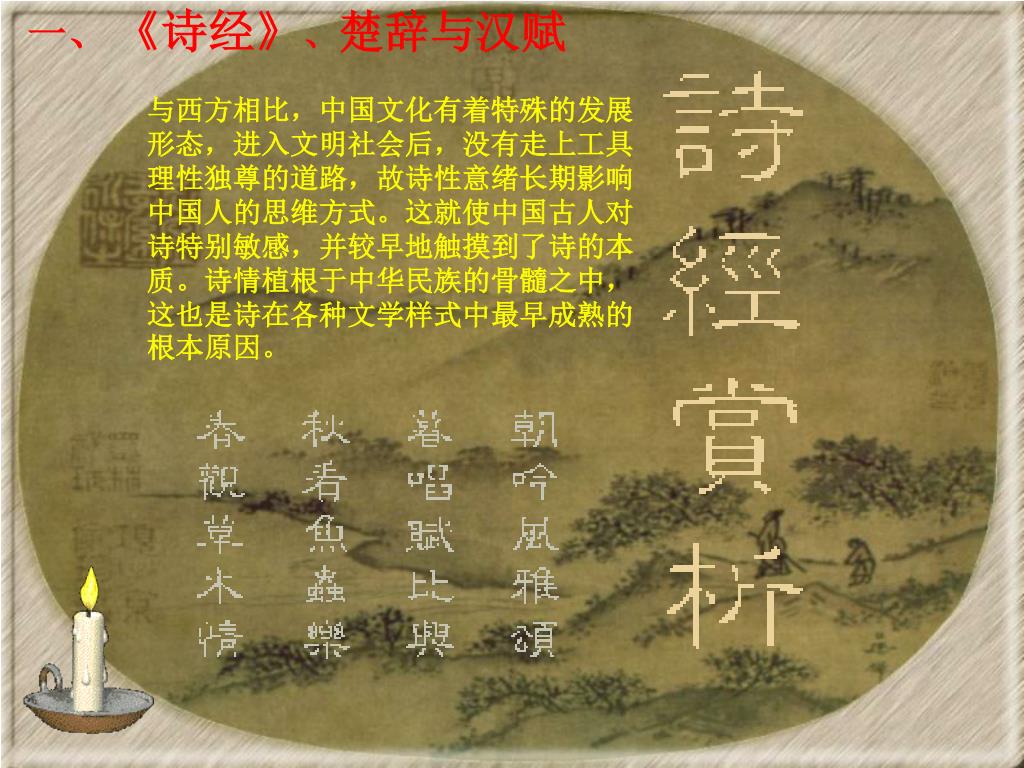 一、《诗经》、楚辞与汉赋
与西方相比，中国文化有着特殊的发展
形态，进入文明社会后，没有走上工具
理性独尊的道路，故诗性意绪长期影响
中国人的思维方式。这就使中国古人对
诗特别敏感，并较早地触摸到了诗的本
质。诗情植根于中华民族的骨髓之中，
这也是诗在各种文学样式中最早成熟的
根本原因。
詩經賞析
朝吟風雅頌
暮唱賦比興
秋看魚蟲樂
春觀草木情